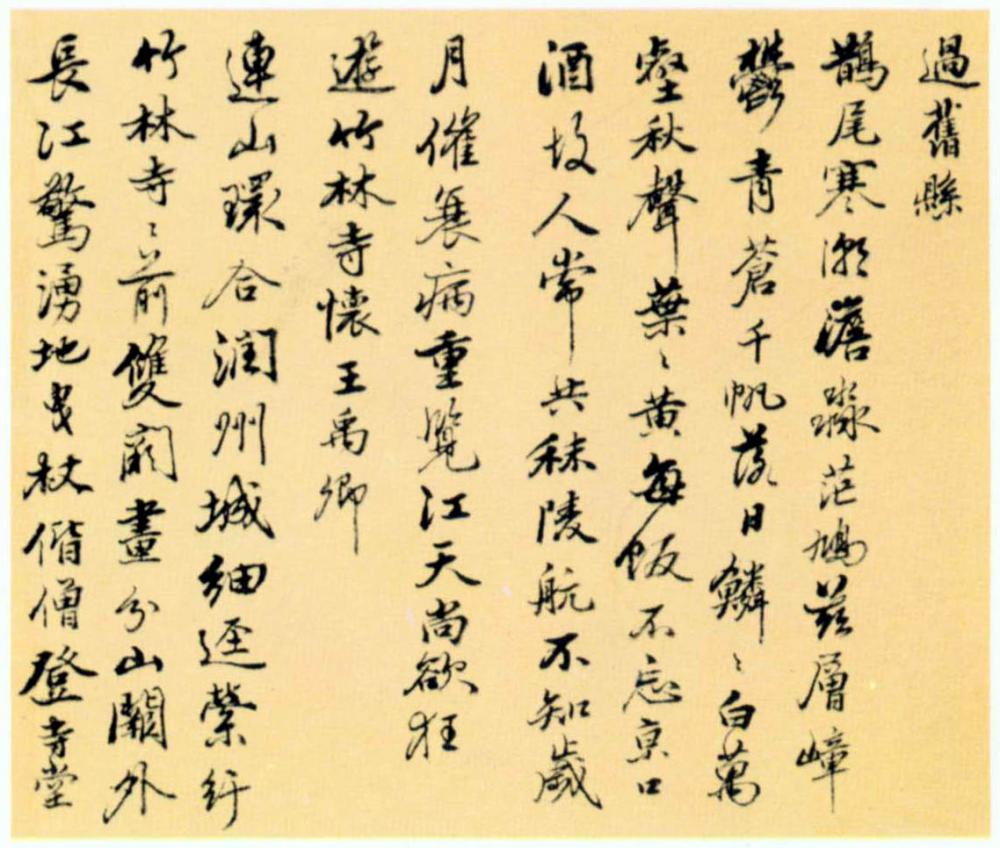 過舊縣
鵲尾寒潮澹淼茫鳩茲層嶂
鬱青蒼千帆落日鱗〻白萬
壑秋聲葉〻黃每飯不忘京口
酒故人常共秣陵航不知歲
月催衰病重覽江天尚欲狂
遊竹林寺懷王禹卿
連山環合潤州城細逕縈紆
竹林寺〻前雙澗畫分山關外
長江驚湧地曳杖偕僧登寺堂